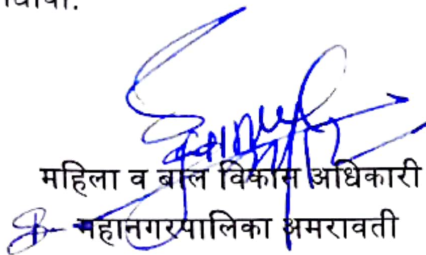 महिला व बाल विकास अधिकारी
महानगरपालिका अमरावती